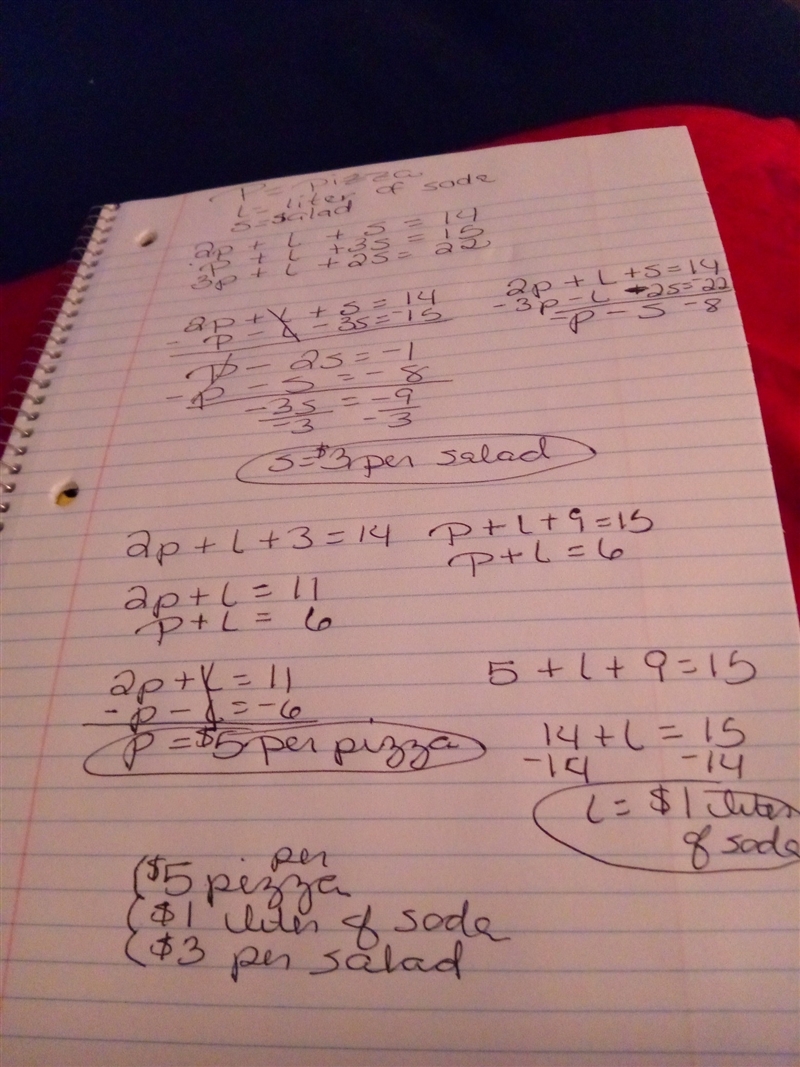 P = pizza
L = liter of soda
S = salad
2p + L + s = 14
p + L + 3s = 15
3p + L + 2s = 22
2p + L + s = 14
- p - L - 3s = -15
p - 2s = -1
- p - s = -8
-3s = -9
-3 -3
s = $3 per salad
2p + L + s = 14
- 3p - L - 2s = -22
-p - s -8
2p + L + 3 = 14
p + L + 9 = 15
p + L = 6
2p + L = 11
p + L = 6
2p + L = 11
- p - L = -6
p = $5 per pizza
5 + L + 9 = 15
14 + L = 15
-14 -14
L = $1 liter
of soda
per
($5 pizza
($1 liter of soda
($3 per salad